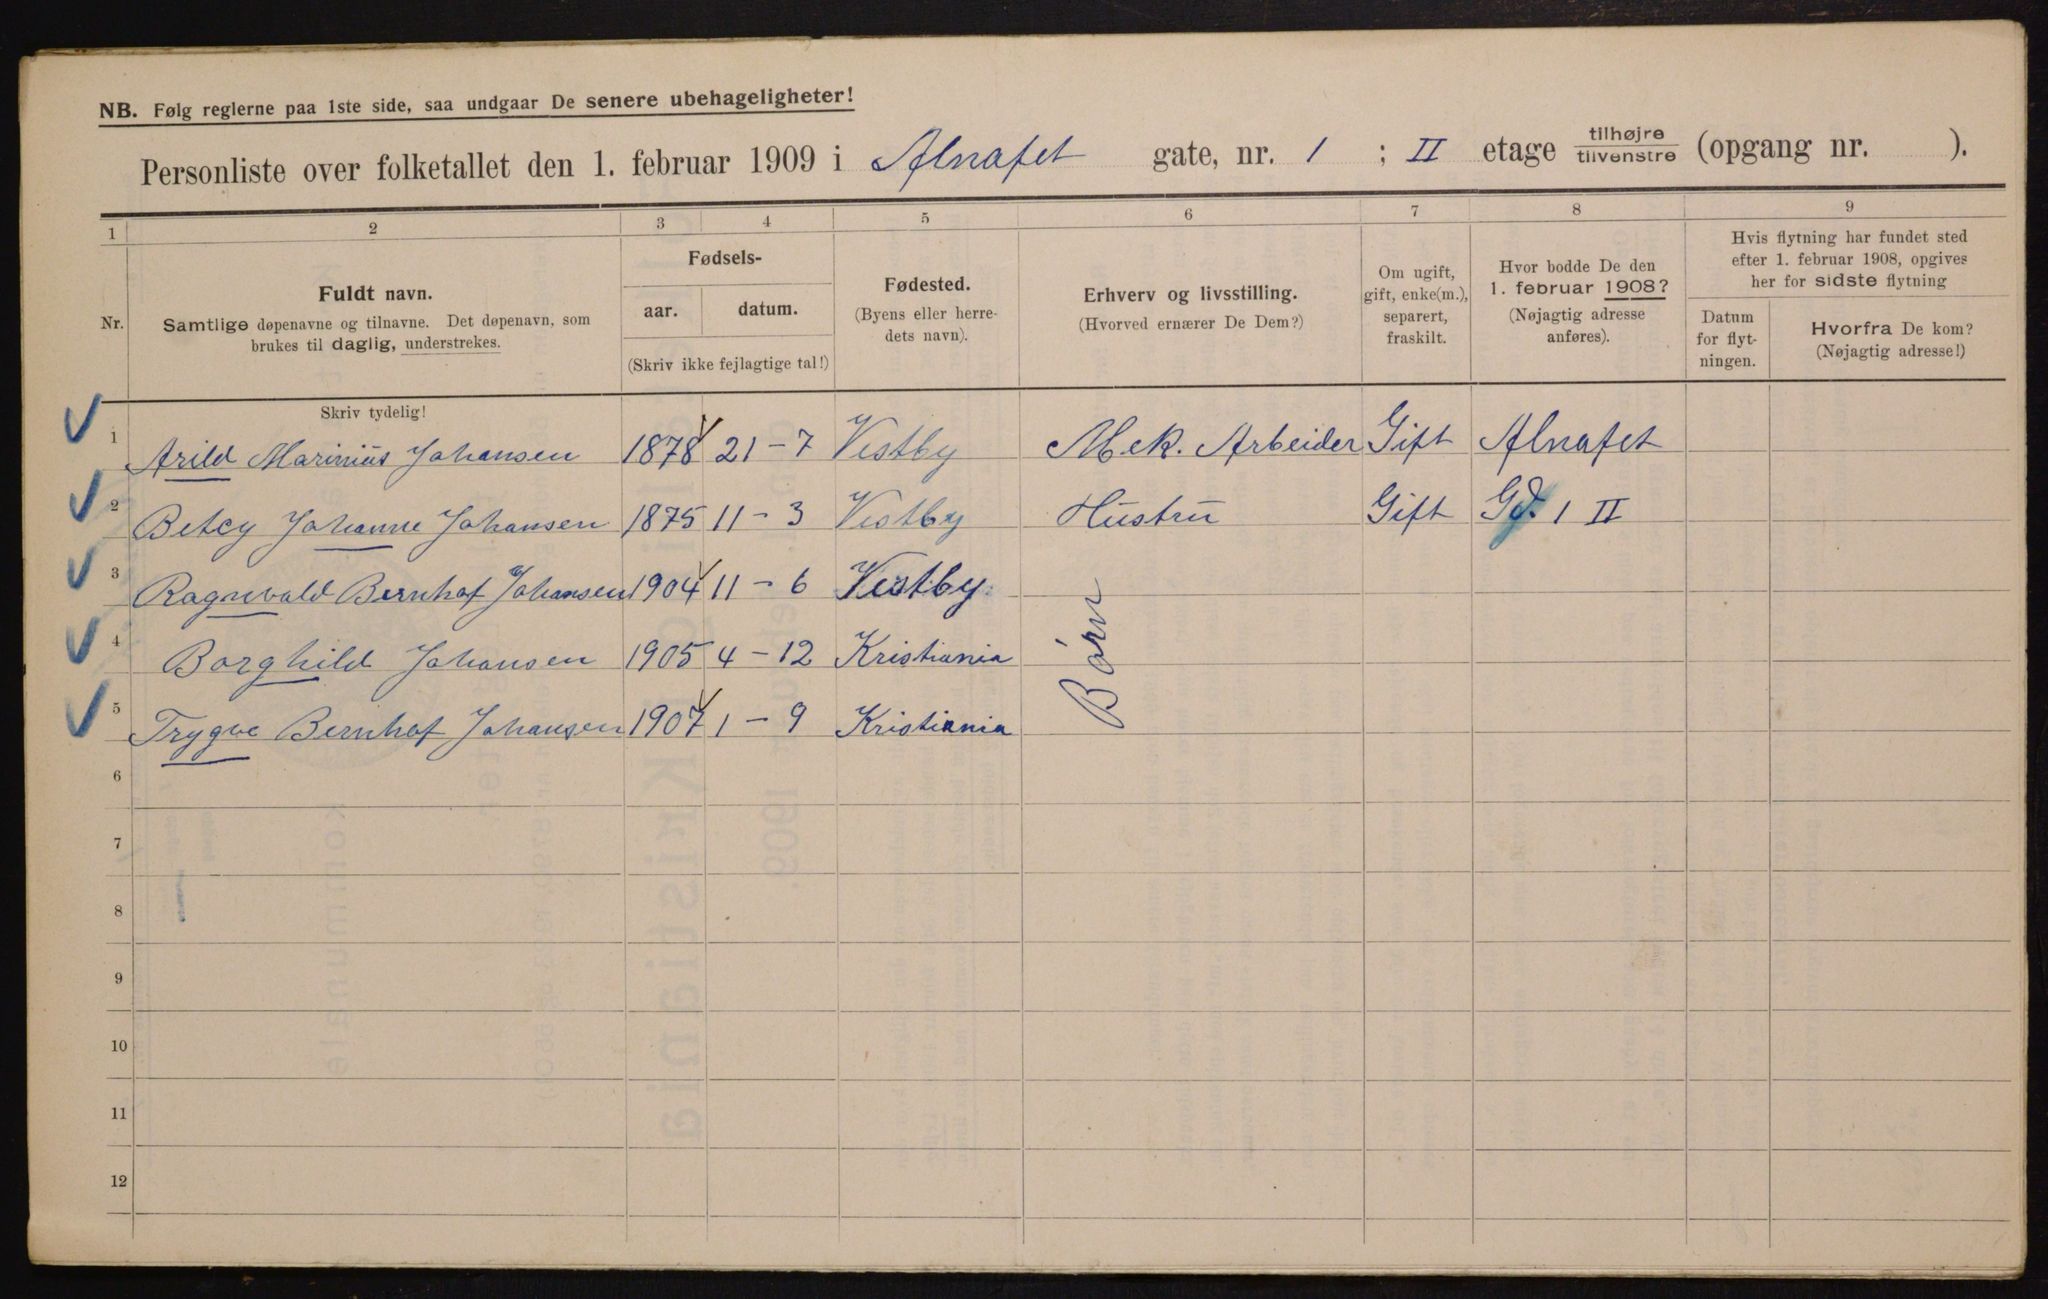 NB. Følg reglerne paa 1ste side, saa undgaar De senere ubehageligheter!
Personliste over folketallet den 1. februar 1909 i Alnafet gate, nr. 1 ; II etage tilhøjre / tilvenstre (opgang nr. ).
1 2 3 4 5 6 7 8 9
Nr.
Fuldt navn.
Samtlige døpenavne og tilnavne. Det døpenavn, som
brukes til daglig, understrekes.
Fødsels-
aar. datum.
(Skriv ikke fejlagtige tal!)
Fødested.
(Byens eller herre-
dets navn).
Erhverv og livsstilling.
(Hvorved ernærer De Dem?)
Om ugift,
gift, enke(m.),
separert,
fraskilt.
Hvor bodde De den
1. februar 1908?
(Nøjagtig adresse
anføres).
Hvis flytning har fundet sted
efter 1. februar 1908, opgives
her for sidste flytning
Datum
for flyt-
ningen.
Hvorfra De kom?
(Nøjagtig adresse!)
Skriv tydelig!
1 Arild Marinius Johansen 1878 21-7 Vestby Mek. Arbeider Gift Alnafet
2 Betcy Johanne Johansen 1875 11-3 Vestby Hustru Gift Gd. 1 II
3 Ragnvald Bernhof Johansen 1904 11-6 Vestby
4 Borghild Johansen 1905 4-12 Kristiania
Børn
5 Trygve Bernhof Johansen 1907 1-9 Kristiania
6
7
8
9
10
11
12